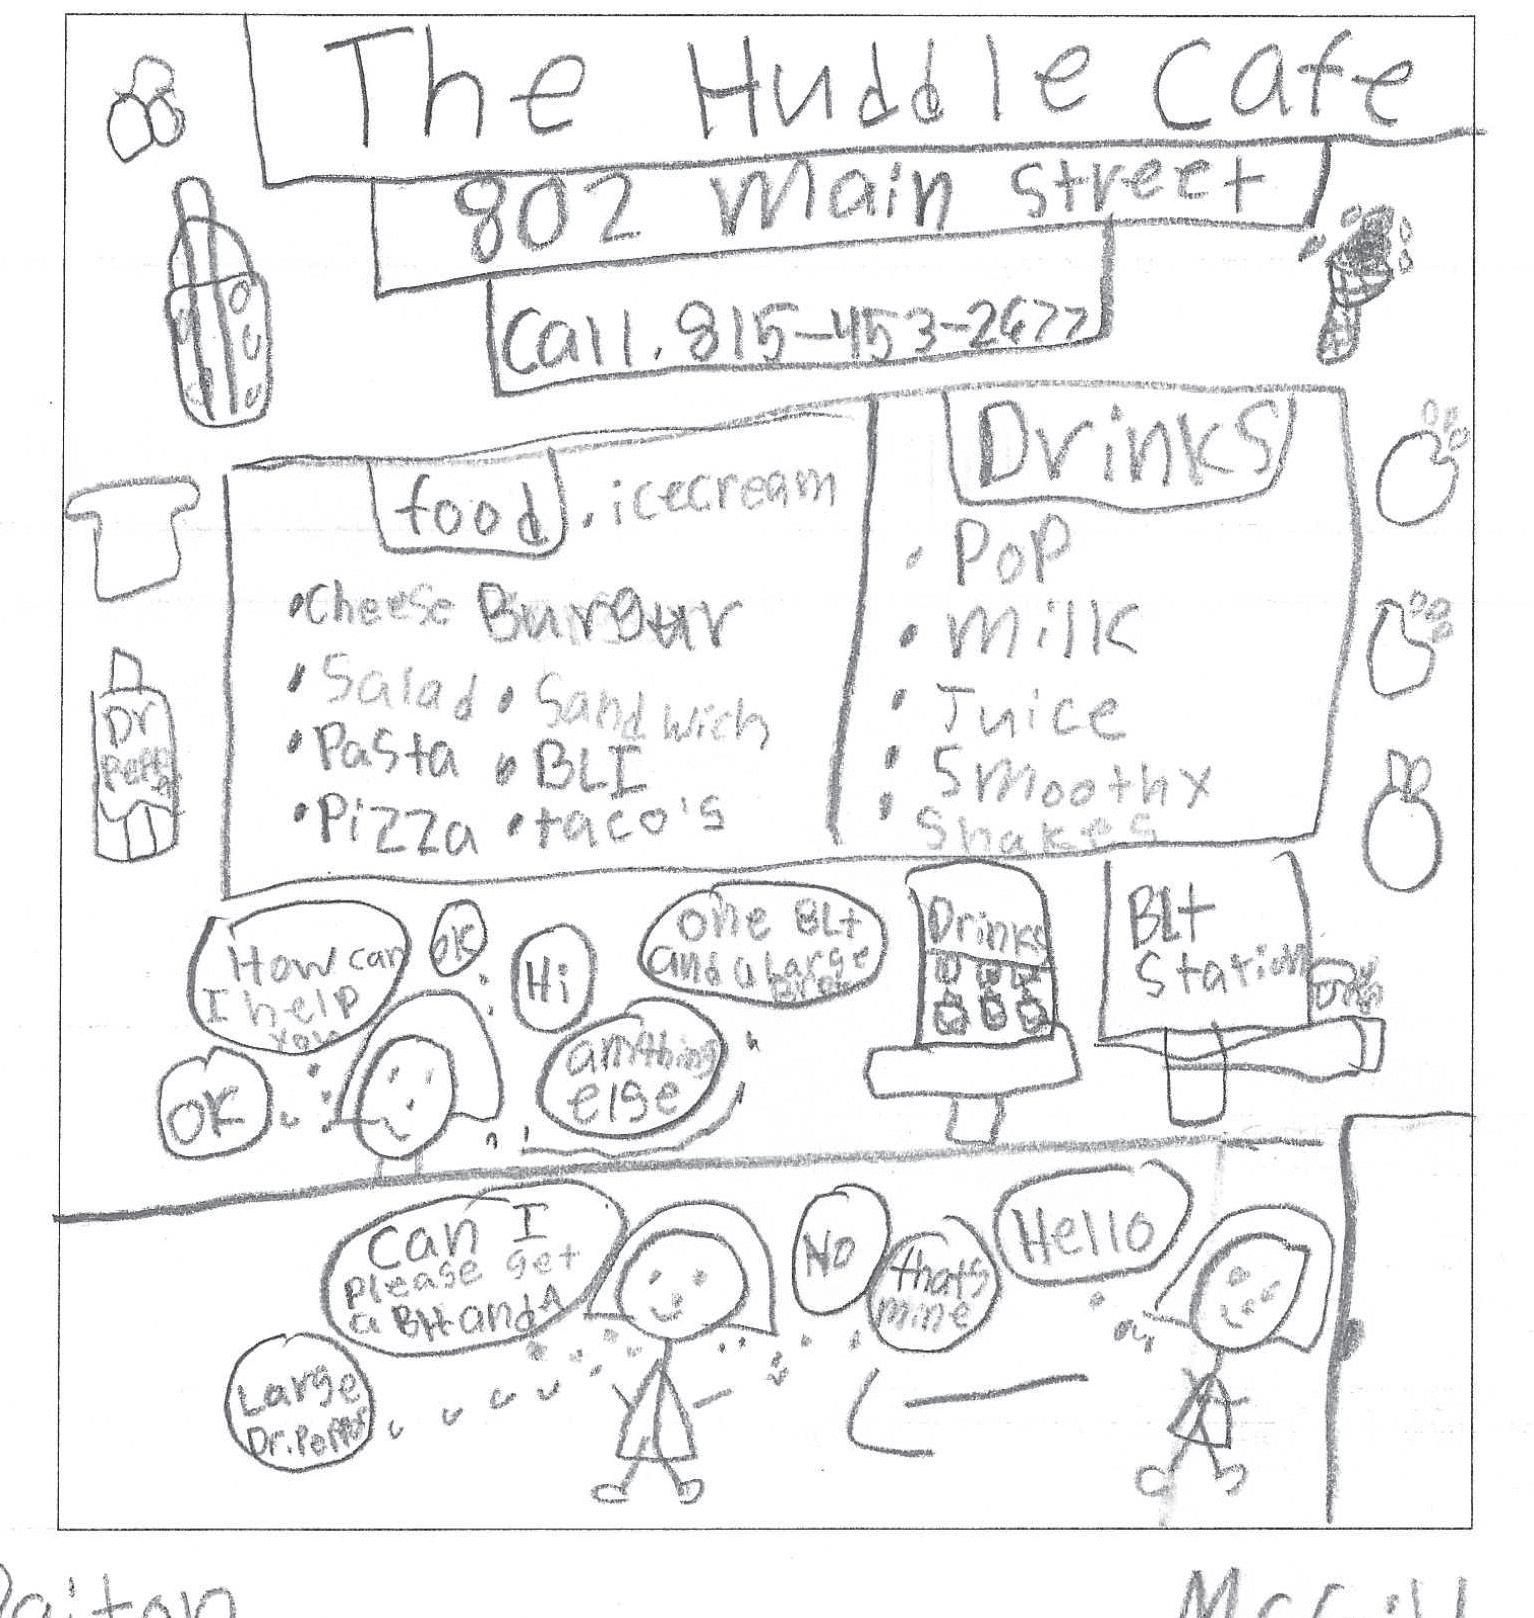 The Huddle Cafe
802 Main street
Call. 815-453-2677
food
. icecream
• Cheese Burgur
• Salad • Sandwich
• Pasta • BLT
• Pizza • taco's
Drinks
• PoP
• Milk
• Juice
• Smoothy
• Shakes
Dr
How can
I help
you
OK
Hi
one BLt
and a Large
Drinks
BLt
Station
OK
anything
else
Can I
please get
a Blt and A
Large
Dr. Pepper
No
thats
mine
Hello
Paiton
McGill